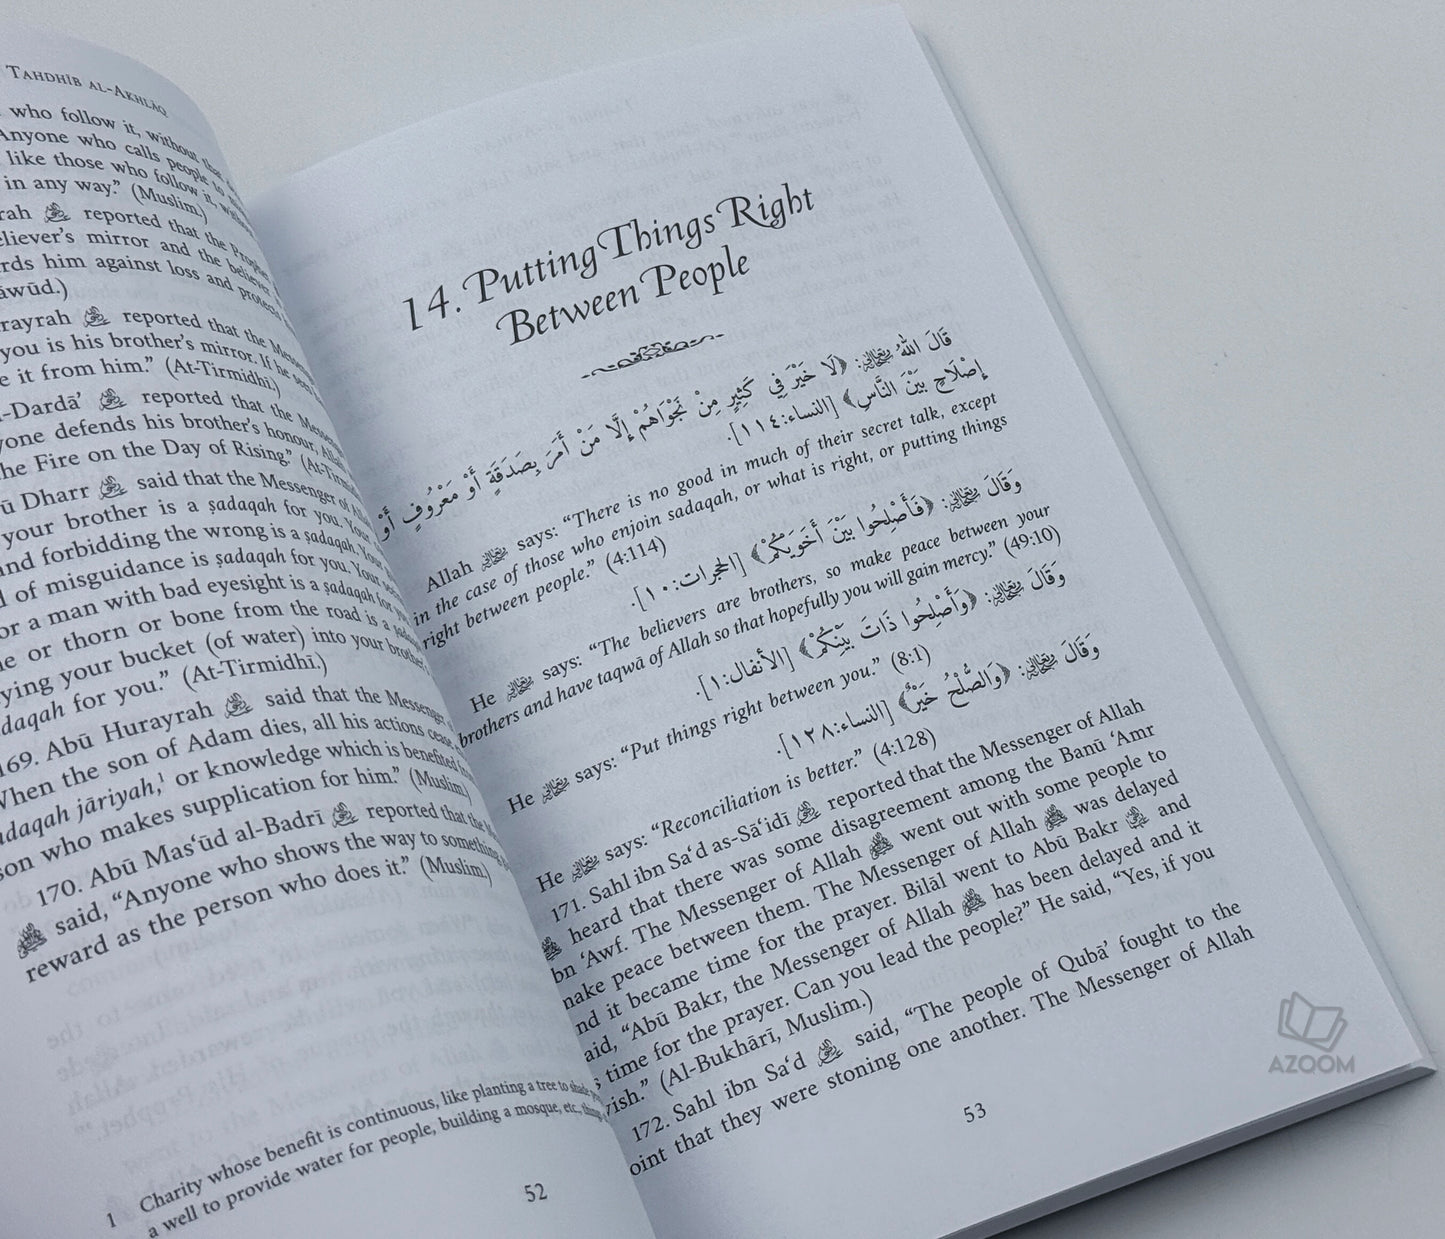 TAHDHĪB AL-AKHLĀQ
who follow it, without that
Anyone who calls people to
like those who follow it,
in any way.” (Muslim.)
rah ﷺ reported that the Prophet
eliever’s mirror and the believer
rds him against loss and protects
āwūd.)
rayrah reported that the Messenger
you is his brother’s mirror. If he sees
e it from him.” (At-Tirmidhī.)
-Dardā’ reported that the Messenger
yone defends his brother’s honour, Allah
he Fire on the Day of Rising.” (At-Tirmidhī
ū Dharr said that the Messenger of Allah
your brother is a ṣadaqah for you. Your
and forbidding the wrong is a ṣadaqah. Your
d of misguidance is ṣadaqah for you. Your
or a man with bad eyesight is a ṣadaqah for you
e or thorn or bone from the road is a ṣadaqah
ying your bucket (of water) into your brother’s
daqah for you.” (At-Tirmidhī.)
169. Abū Hurayrah said that the Messenger
When the son of Adam dies, all his actions cease
adaqah jāriyah,¹ or knowledge which is benefited from
son who makes supplication for him.” (Muslim.)
170. Abū Mas‘ūd al-Badrī reported that the
ﷺ said, “Anyone who shows the way to something
reward as the person who does it.” (Muslim.)
1 Charity whose benefit is continuous, like planting a tree to shade
a well to provide water for people, building a mosque, etc.,
52
14. Putting Things Right
Between People
قَالَ اللهُ تعالى: ﴿لَا خَيْرَ فِي كَثِيرٍ مِنْ نَجْوَاهُمْ إِلَّا مَنْ أَمَرَ بِصَدَقَةٍ أَوْ مَعْرُوفٍ أَوْ
إِصْلَاحٍ بَيْنَ النَّاسِ﴾ [النساء:١١٤].
Allah says: “There is no good in much of their secret talk, except
in the case of those who enjoin sadaqah, or what is right, or putting things
right between people.” (4:114)
وَقَالَ تعالى: ﴿فَأَصْلِحُوا بَيْنَ أَخَوَيْكُمْ﴾ [الحجرات:١٠].
He says: “The believers are brothers, so make peace between your
brothers and have taqwā of Allah so that hopefully you will gain mercy.” (49:10)
وَقَالَ تعالى: ﴿وَأَصْلِحُوا ذَاتَ بَيْنِكُمْ﴾ [الأنفال:١].
He says: “Put things right between you.” (8:1)
وَقَالَ تعالى: ﴿وَالصُّلْحُ خَيْرٌ﴾ [النساء:١٢٨].
He says: “Reconciliation is better.” (4:128)
171. Sahl ibn Sa‘d as-Sā‘idī reported that the Messenger of Allah
ﷺ heard that there was some disagreement among the Banū ‘Amr
bn ‘Awf. The Messenger of Allah ﷺ went out with some people to
make peace between them. The Messenger of Allah ﷺ was delayed
nd it became time for the prayer. Bilāl went to Abū Bakr and
aid, “Abū Bakr, the Messenger of Allah ﷺ has been delayed and it
s time for the prayer. Can you lead the people?” He said, “Yes, if you
vish.” (Al-Bukhārī, Muslim.)
172. Sahl ibn Sa‘d said, “The people of Qubā’ fought to the
oint that they were stoning one another. The Messenger of Allah
53
AZOOM